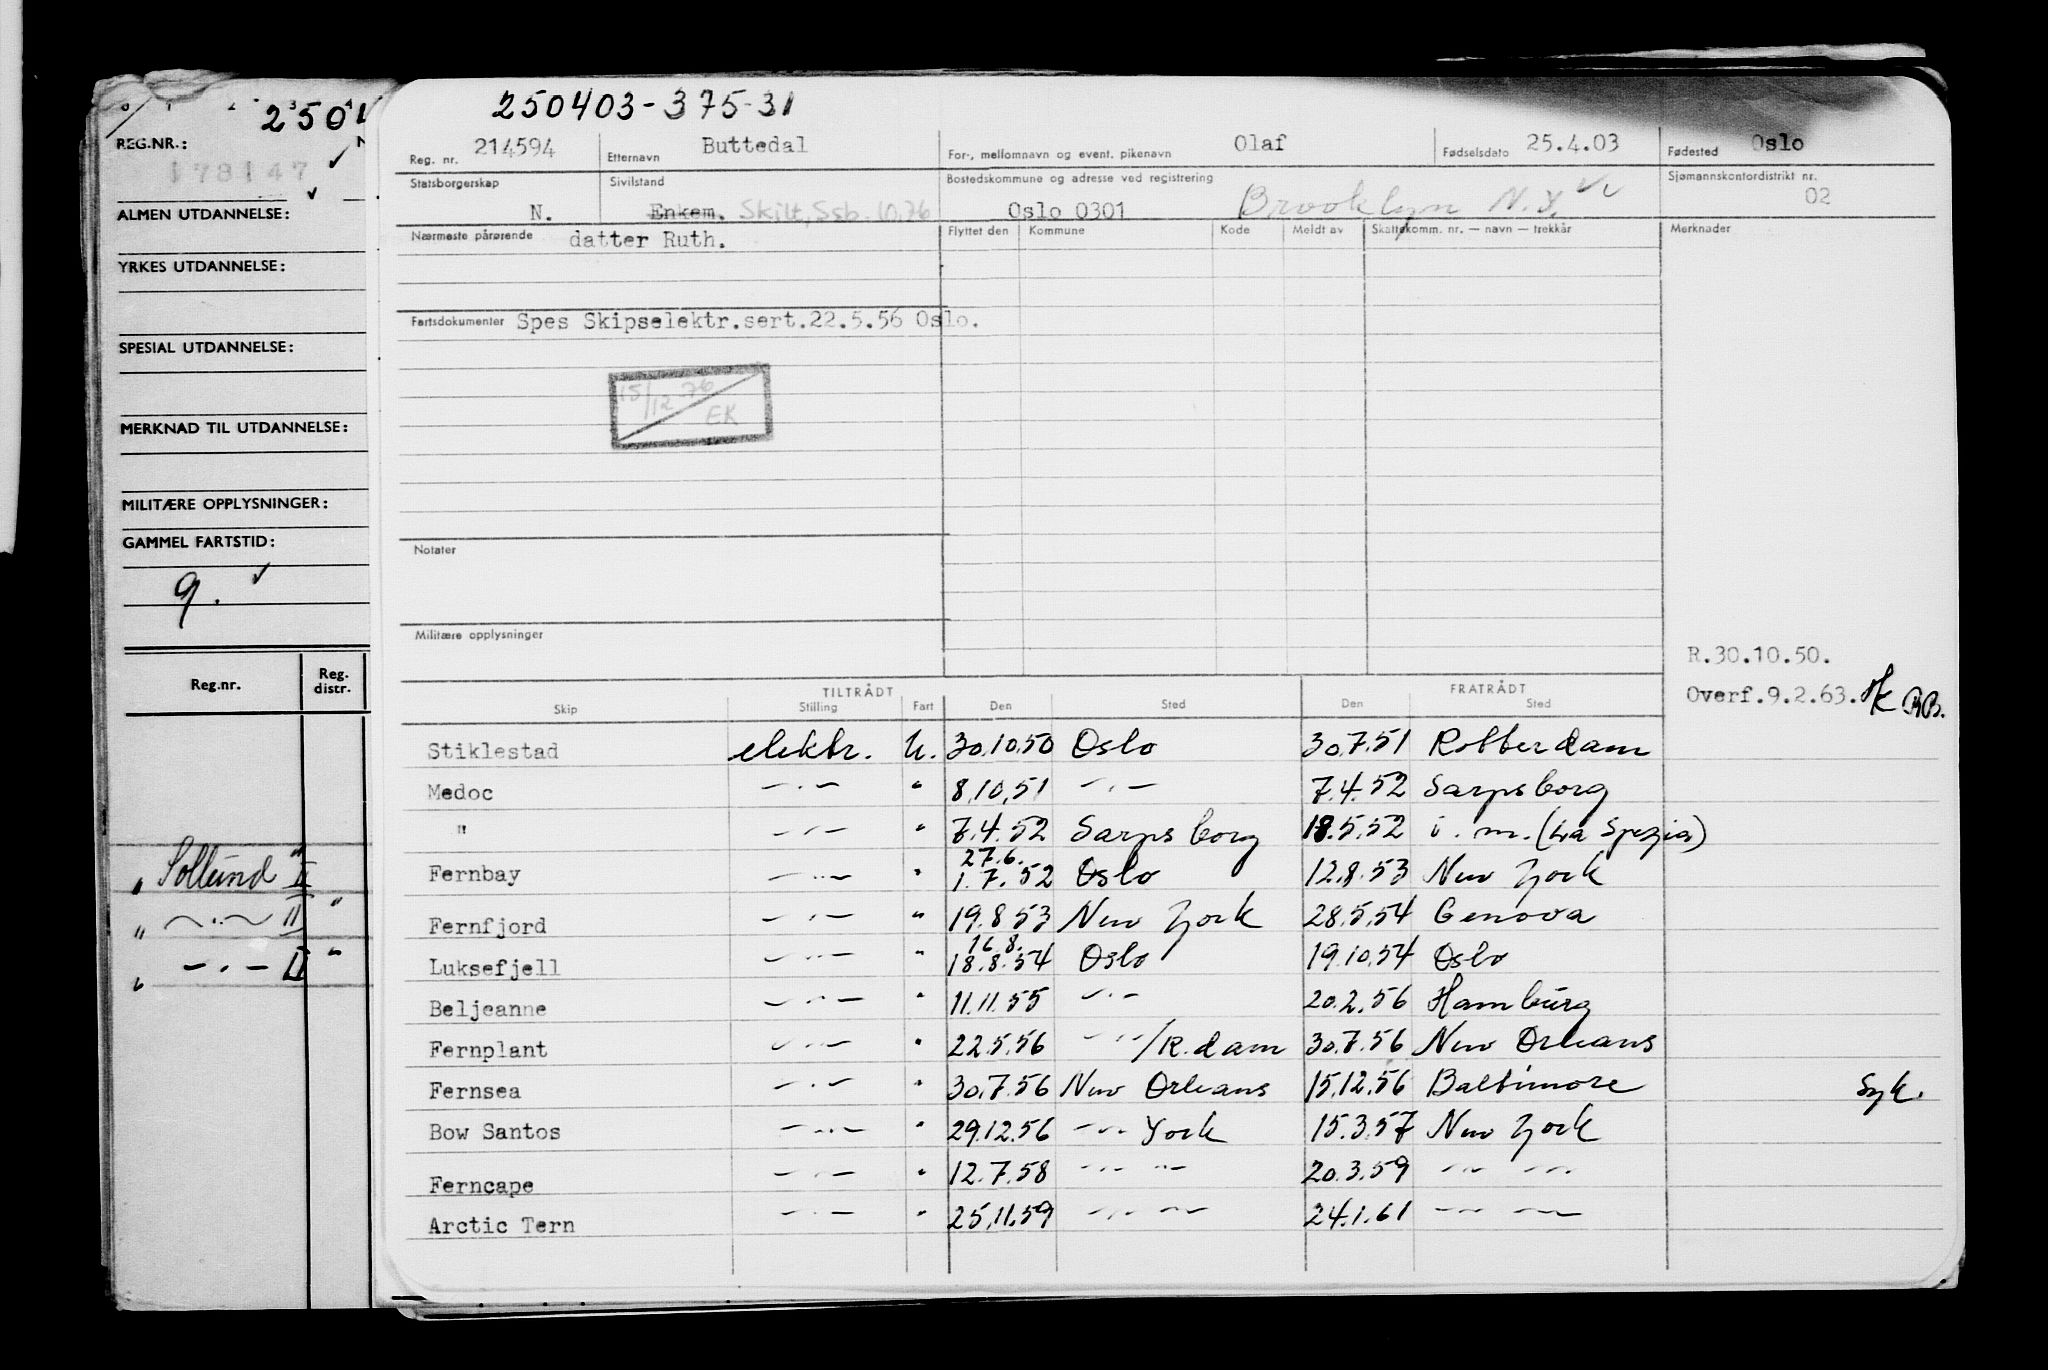 2501
REG.NR.:
178147
ALMEN UTDANNELSE:
YRKES UTDANNELSE:
SPESIAL UTDANNELSE:
MERKNAD TIL UTDANNELSE:
MILITÆRE OPPLYSNINGER:
GAMMEL FARTSTID:
9.
Reg.nr. Reg. distr.
" Sollund II "
" —..— II "
" —.— II "
250403-375-31
Reg. nr. 214594 Etternavn Buttedal For-, mellomnavn og event. pikenavn Olaf Fødselsdato 25.4.03 Fødested Oslo
Statsborgerskap Sivilstand Bostedskommune og adresse ved registrering Sjømannskontordistrikt nr.
N. Enkem. Skilt, Ssb. 10.76 Oslo 0301 Brooklyn N.Y. 02
Nærmeste pårørende datter Ruth. Flyttet den Kommune Kode Meldt av Skattekomm. nr. — navn — trekkår Merknader
Fartsdokumenter Spes Skipselektr.sert.22.5.56 Oslo.
15/12 76 EK
Notater
Militære opplysninger
R.30.10.50.
Overf.9.2.63. RB.
TILTRÅDT FRATRÅDT
Skip Stilling Fart Den Sted Den Sted
Stiklestad elektr. U. 30.10.50 Oslo 30.7.51 Rotterdam
Medoc —.— " 8.10.51 —.— 7.4.52 Sarpsborg
" —.— " 7.4.52 Sarpsborg 18.5.52 i. m. (La Spezia)
27.6.
Fernbay —..— " 1.7.52 Oslo 12.8.53 New York
Fernfjord —.— " 19.8 53 New York 28.5.54 Genova
16.8.
Luksefjell —..— " 18.8.54 Oslo 19.10.54 Oslo
Beljeanne —.— " 11.11.55 —.— 20.2.56 Hamburg
Fernplant —..— " 22.5.56 —..—/R.dam 30.7.56 New Orleans
Fernsea —.— " 30.7.56 New Orleans 15.12.56 Baltimore Syk.
Bow Santos —..— " 29.12.56 —..— York 15.3.57 New York
Ferncape —.— " 12.7.58 —..— —..— 20.3.59 —..— —..—
Arctic Tern —.— " 25.11.59 —..— —..— 24.1.61 —..— —..—